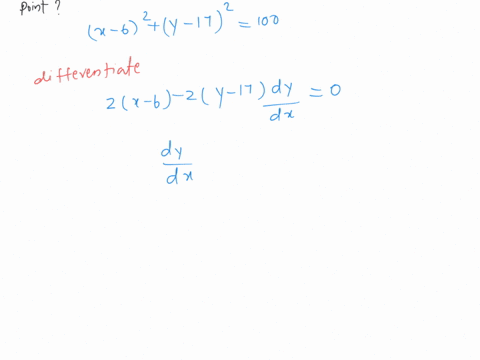 Point ?
(x-6)²+(y-17)²=100
differentiate
2(x-6)-2(y-17)dy/dx=0
dy/dx